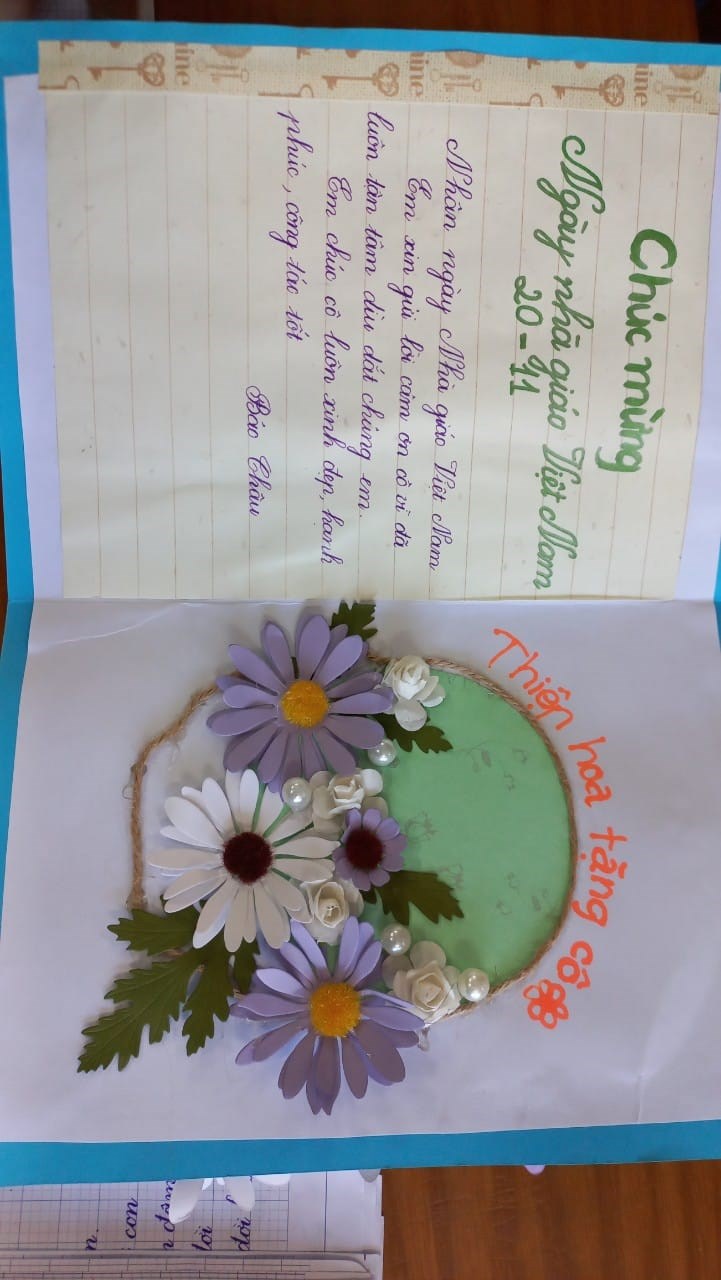 Chúc mừng
Ngày nhà giáo Việt Nam
20-11
Nhân ngày Nhà giáo Việt Nam
Em xin gửi lời cảm ơn cô vì đã
luôn tận tâm dìu dắt chúng em.
Em chúc cô luôn xinh đẹp, hạnh
phúc, công tác tốt
Bảo Châu
Thiệp hoa tặng cô
con
lời